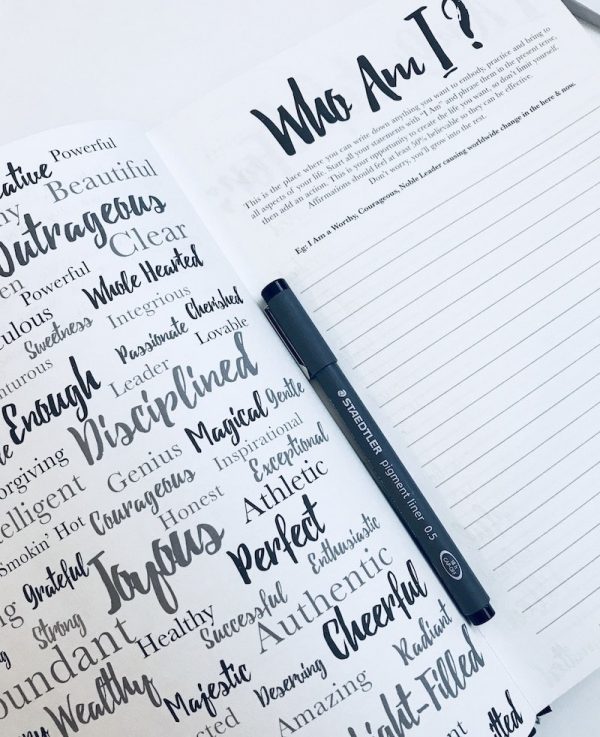 ative Powerful
Beautiful
Outrageous
Clear
Powerful Whole Hearted
ulous Sweetness Integrious
nturous Passionate Cherished
Enough Leader Lovable
Disciplined
orgiving Genius Magical Gentle
telligent Courageous Inspirational
Smokin' Hot Honest Exceptional
Grateful Joyous Athletic
Strong Perfect
Healthy Successful Enthusiastic
bundant Authentic
Wealthy Majestic Deserving Cheerful
Amazing Radiant
ight-Filled
Who Am I?
This is the place where you can write down anything you want to embody, practice and bring to
all aspects of your life. Start all your statements with "I Am" and phrase them in the present tense,
then add an action. This is your opportunity to create the life you want, so don't limit yourself.
Affirmations should feel at least 50% believable so they can be effective.
Don't worry, you'll grow into the rest.
Eg: I Am a Worthy, Courageous, Noble Leader causing worldwide change in the here & now.
STAEDTLER pigment liner 0.5